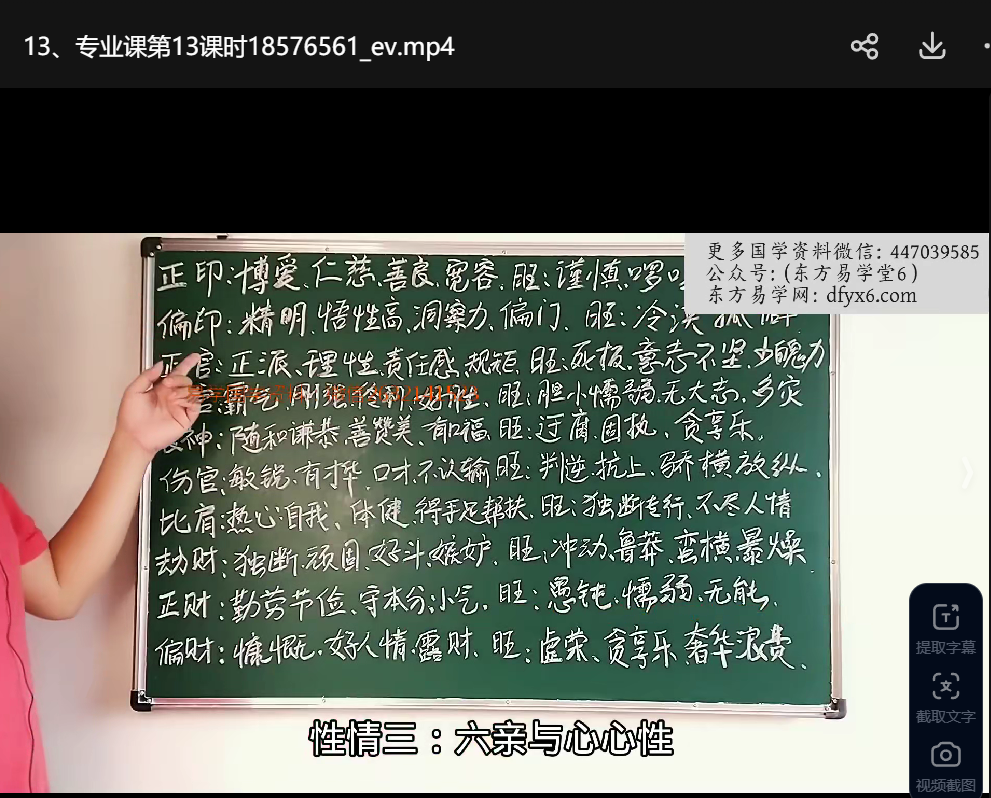 13、专业课第13课时18576561_ev.mp4
更多国学资料微信: 447039585
公众号: (东方易学堂6)
东方易学网: dfyx6.com
正印:博爱、仁慈、善良、宽容、旺:谨慎、啰
偏印:精明、悟性高、洞察力、偏门、旺:冷漠
正官:正派、理性、责任感、规矩、旺:死板、意志不坚、少魄力
霸气、旺:胆小懦弱、无大志、多灾
神:随和谦恭、善赞美、有口福、旺:迂腐、固执、贪享乐。
伤官、敏锐、有才华、口才、不认输、旺:判逆、抗上、骄横放纵、
比肩:热心、自我、体健、得手足帮扶、旺:独断专行、不尽人情
劫财:独断、顽固、好斗、嫉妒、旺、冲动、鲁莽、蛮横、暴燥
正财:勤劳节俭、守本分、小气、旺:愚钝、懦弱、无能、
偏财:慷慨、好人情、露财、旺:虚荣、贪享乐、奢华浪费、
性情三：六亲与心心性
提取字幕
截取文字
视频截图